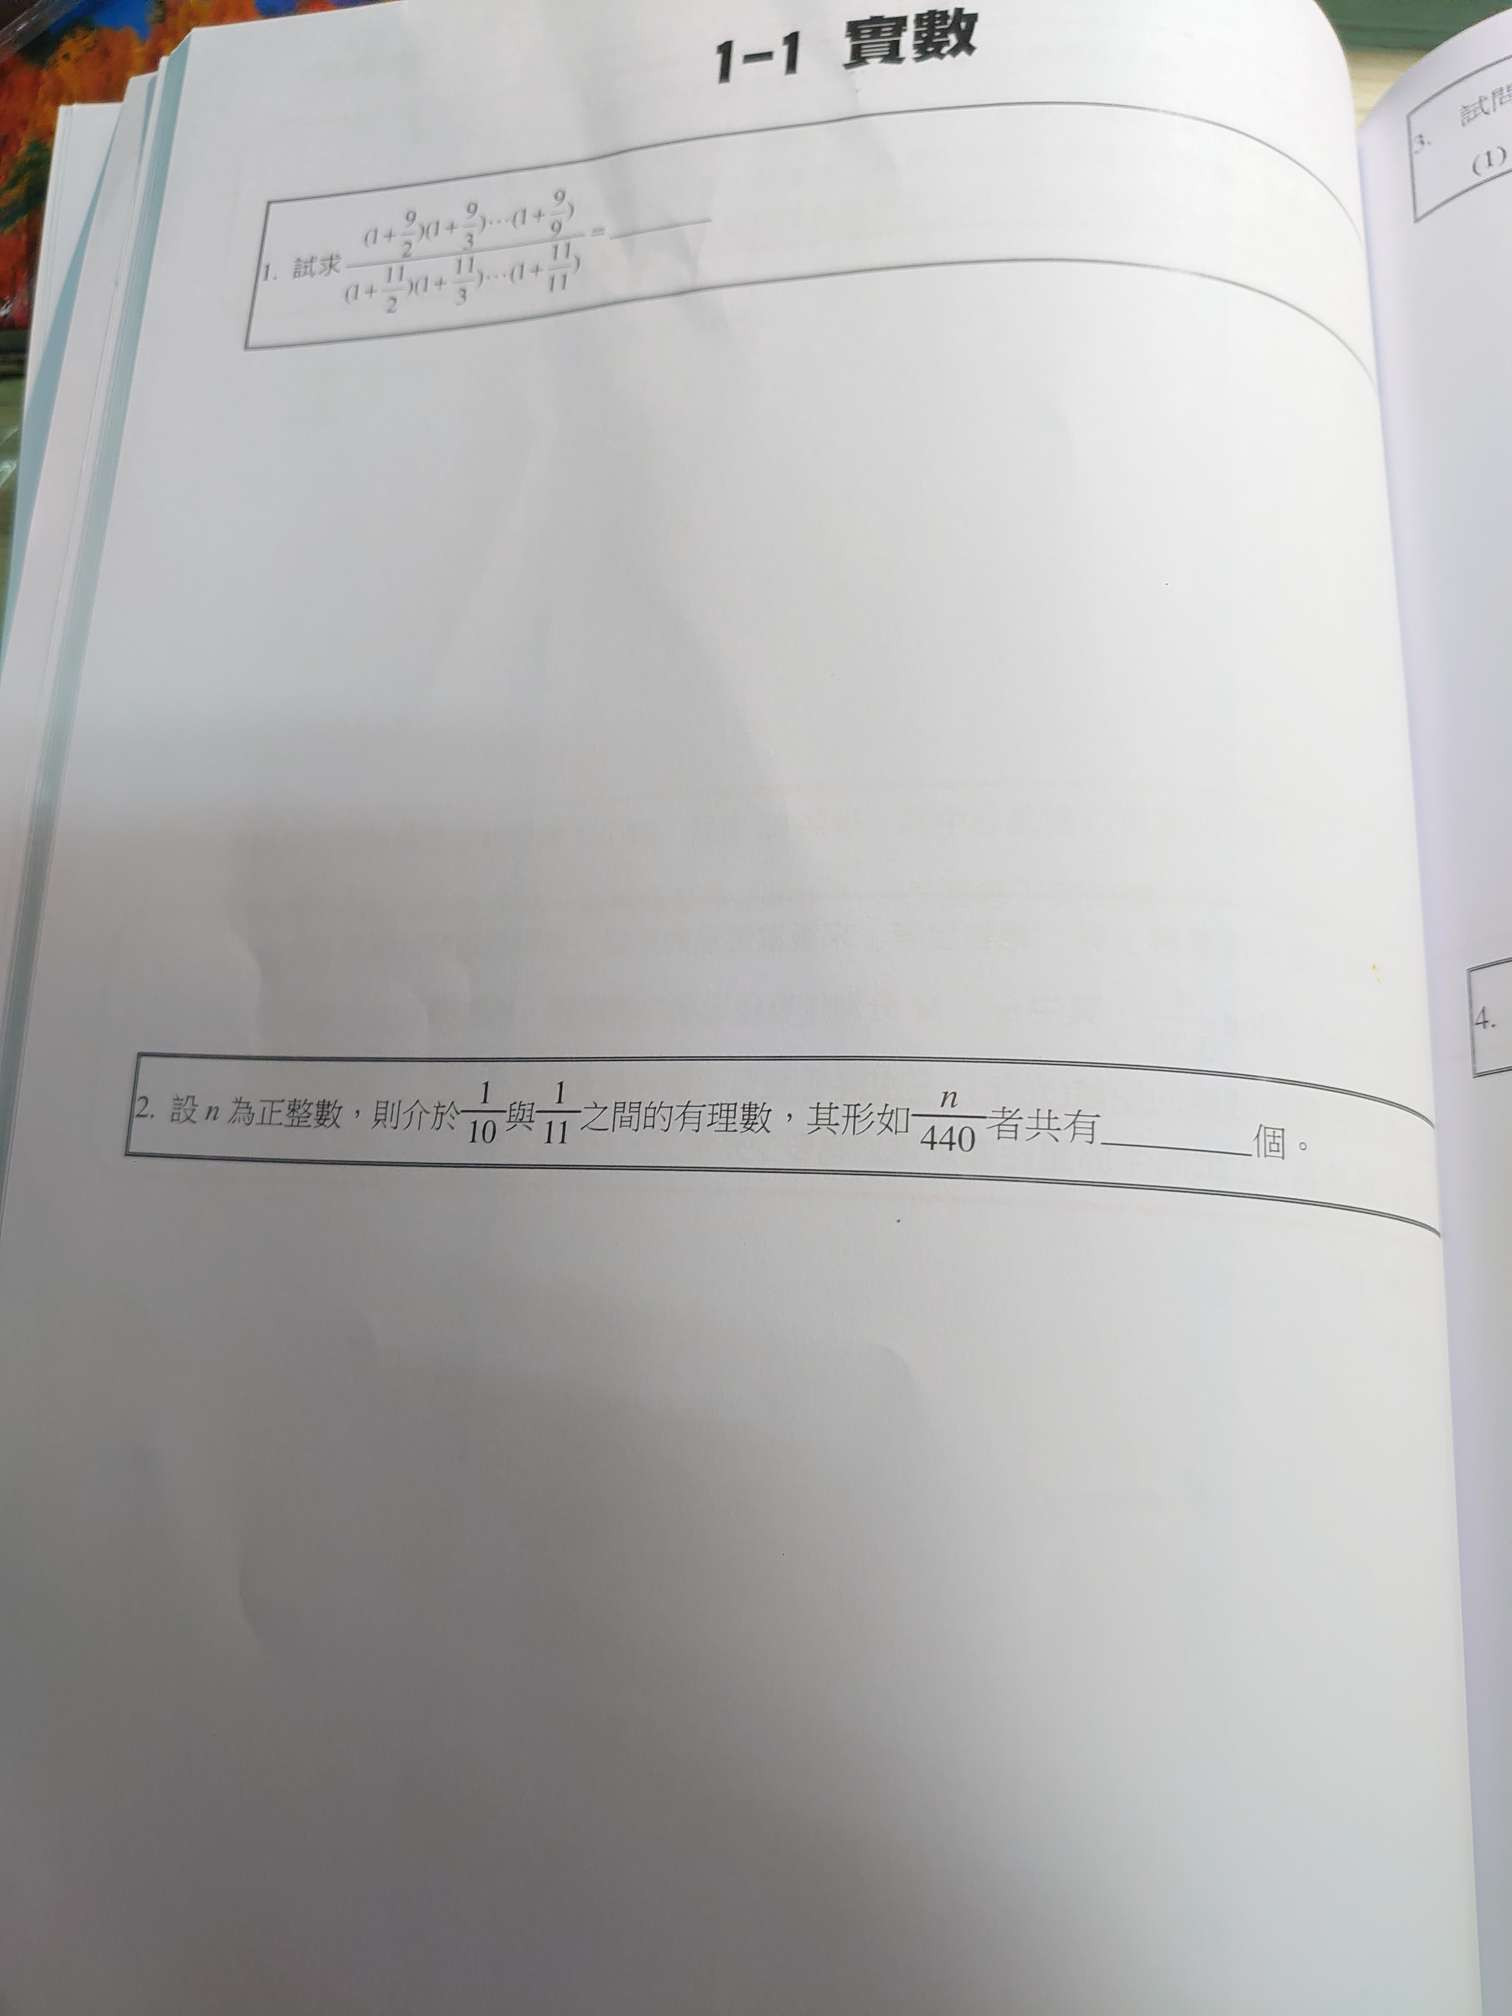 1-1 實數
1. 試求 \frac{(1+\frac{9}{2})(1+\frac{9}{3})⋯(1+\frac{9}{9})}{(1+\frac{11}{2})(1+\frac{11}{3})⋯(1+\frac{11}{11})} = ______
2. 設 n 為正整數，則介於\frac{1}{10}與\frac{1}{11}之間的有理數，其形如\frac{n}{440}者共有______個。
3. 試問
(1)
4.